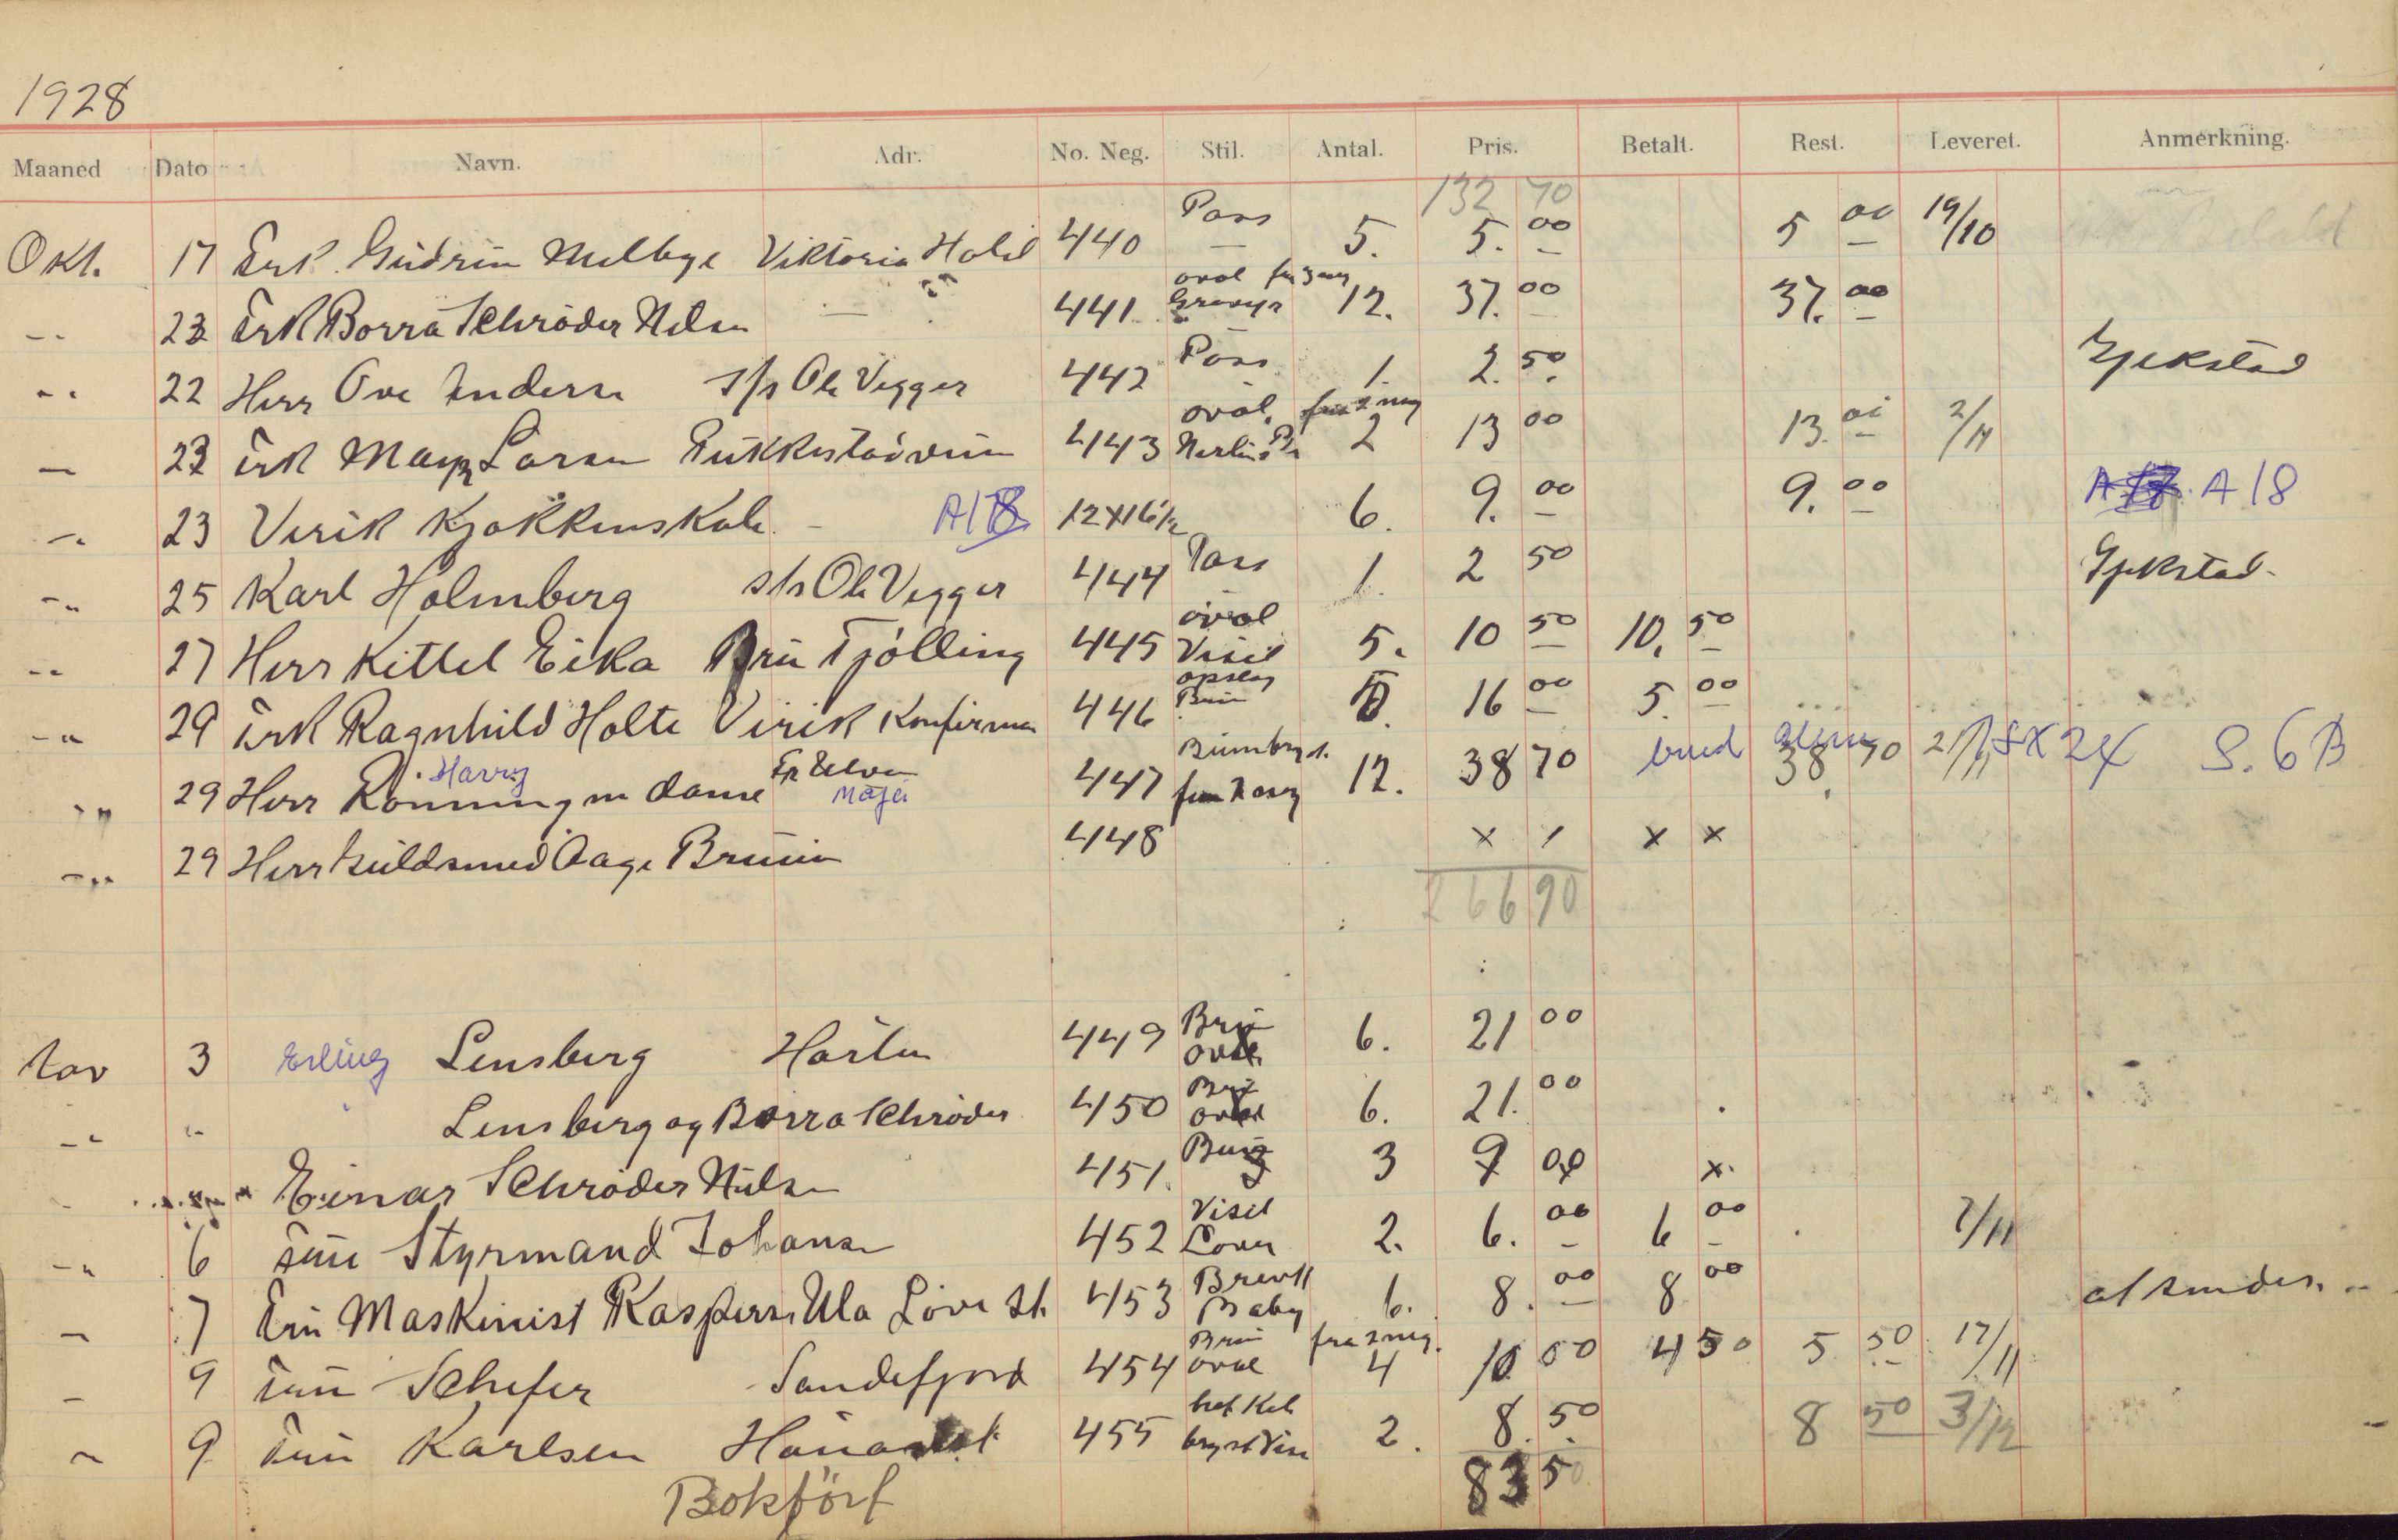 1928
Maaned Dato Navn. Adr. No. Neg. Stil. Antal. Pris. Betalt. Rest. Leveret. Anmerkning.
132 70
Okt. 17 Frk. Gudrun Melbye Viktoria Hotel 440 Pass 5. 5. 00 5 00 19/10
23 Frk Borra Schrøder Nilsen 441 oval fra 3 neg Gravyr 12. 37. 00 37. 00
22 Herr Ove Anderse s/s Ole Vegger 442 Pass 1. 2. 50 Gjekstad
23 Frk Larsen 443 oval. fra 2 neg 2 13 00 13. 00 2/11
23 Virik Kjøkkenskole A18 12x16½ 6. 9. 00 9. 00 A 18
25 Karl Holmberg s/s Ole Vegger 444 Pass 1. 2 50 Gjekstad
27 Herr Kittel Eika Bru Tjølling 445 oval Visit 5. 10 50 10. 50
29 Frk Ragnhild Holte Virik Konfirma 446 opslag Brun 16 00 5. 00
29 Herr Harry Rönning m dame Maja 447 12. 38 70 38. 70 S. 6 B
29 Herr Guldsmed Aage Bruun 448 x x x x
266 90
Nov 3 Erling Lensberg Haslen 449 Brun oval 6. 21 00
Lensberg og Borra Schrøder 450 oval 6. 21. 00
Einar Schrøder Nilsen 451. 3 9 00 x
6 Fru Styrmand Johansen 452 Visit 2. 6. 00 6 00 7/11
7 Fru Maskinist Kaspersen Ula Løve st. 453 Brevk Baby 6. 8. 00 8 00
9 Fru Schefer Sandefjord 454 Brun oval fra 2 neg. 4 10 00 4 50 5 50 17/11
9 Fru Karlsen 455 2. 8. 50 8 50 3/12
Bokført 83 50